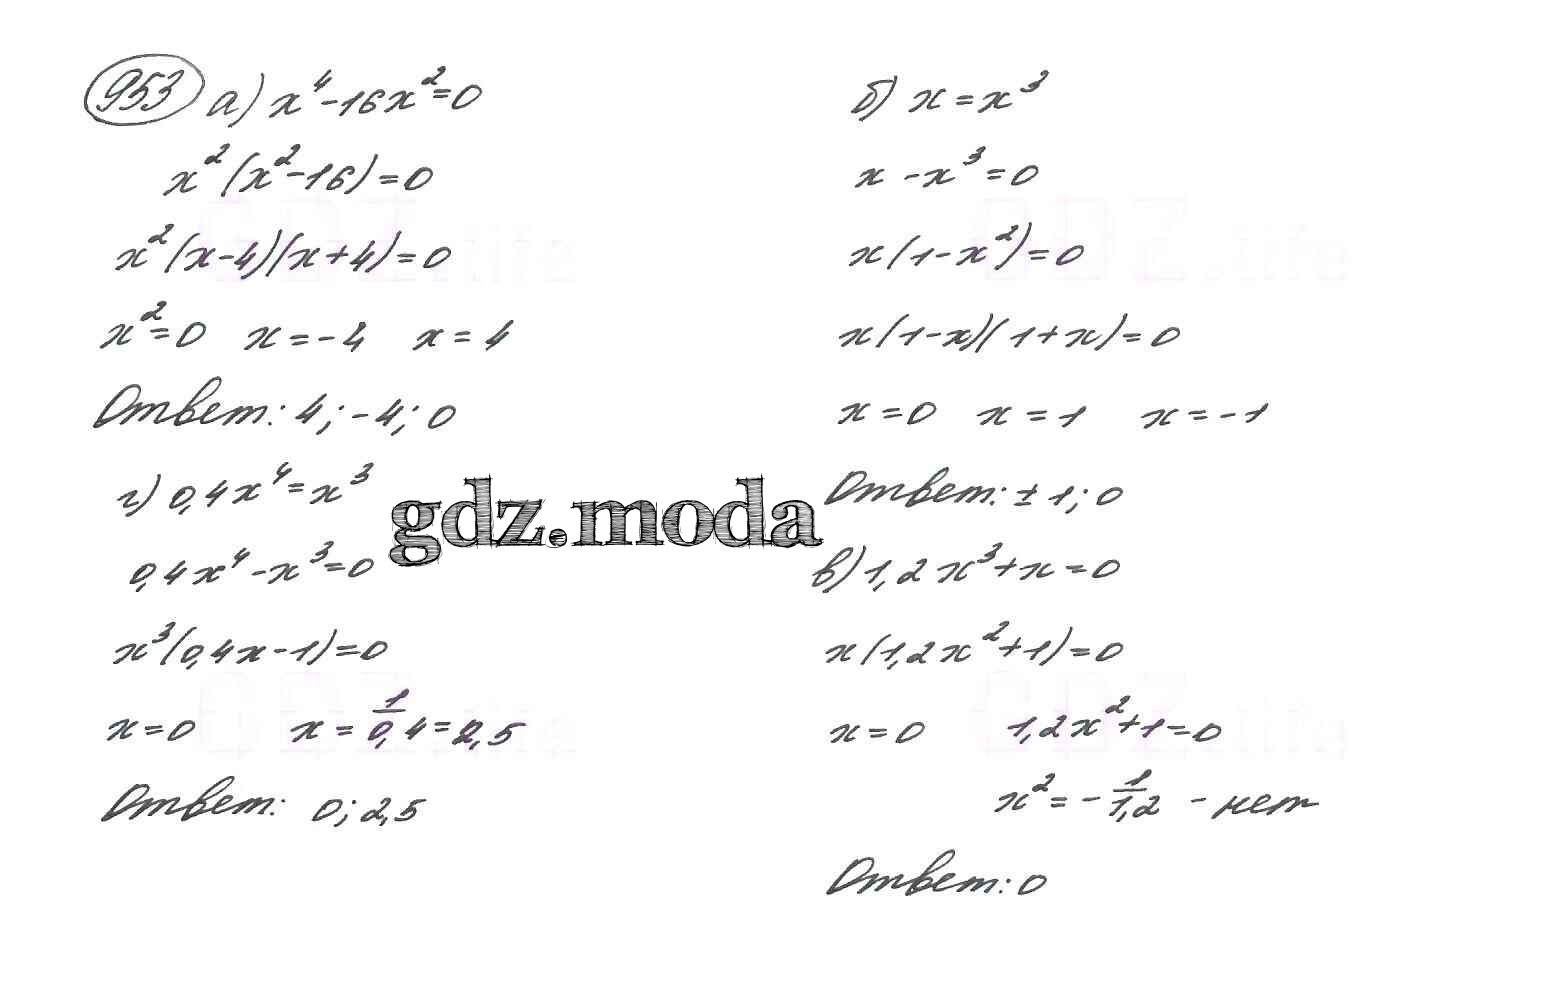 953 а) x⁴-16x²=0
x²(x²-16)=0
x²(x-4)(x+4)=0
x²=0 x=-4 x=4
Ответ: 4; -4; 0
г) 0,4x⁴=x³
0,4x⁴-x³=0
x³(0,4x-1)=0
x=0 x=1/0,4=2,5
Ответ: 0; 2,5
gdz.moda
б) x=x³
x-x³=0
x(1-x²)=0
x(1-x)(1+x)=0
x=0 x=1 x=-1
Ответ: ±1; 0
в) 1,2x³+x=0
x(1,2x²+1)=0
x=0 1,2x²+1=0
x²=-1/1,2 - нет
Ответ: 0
GDZ.life
GDZ.life
GDZ.life
GDZ.life